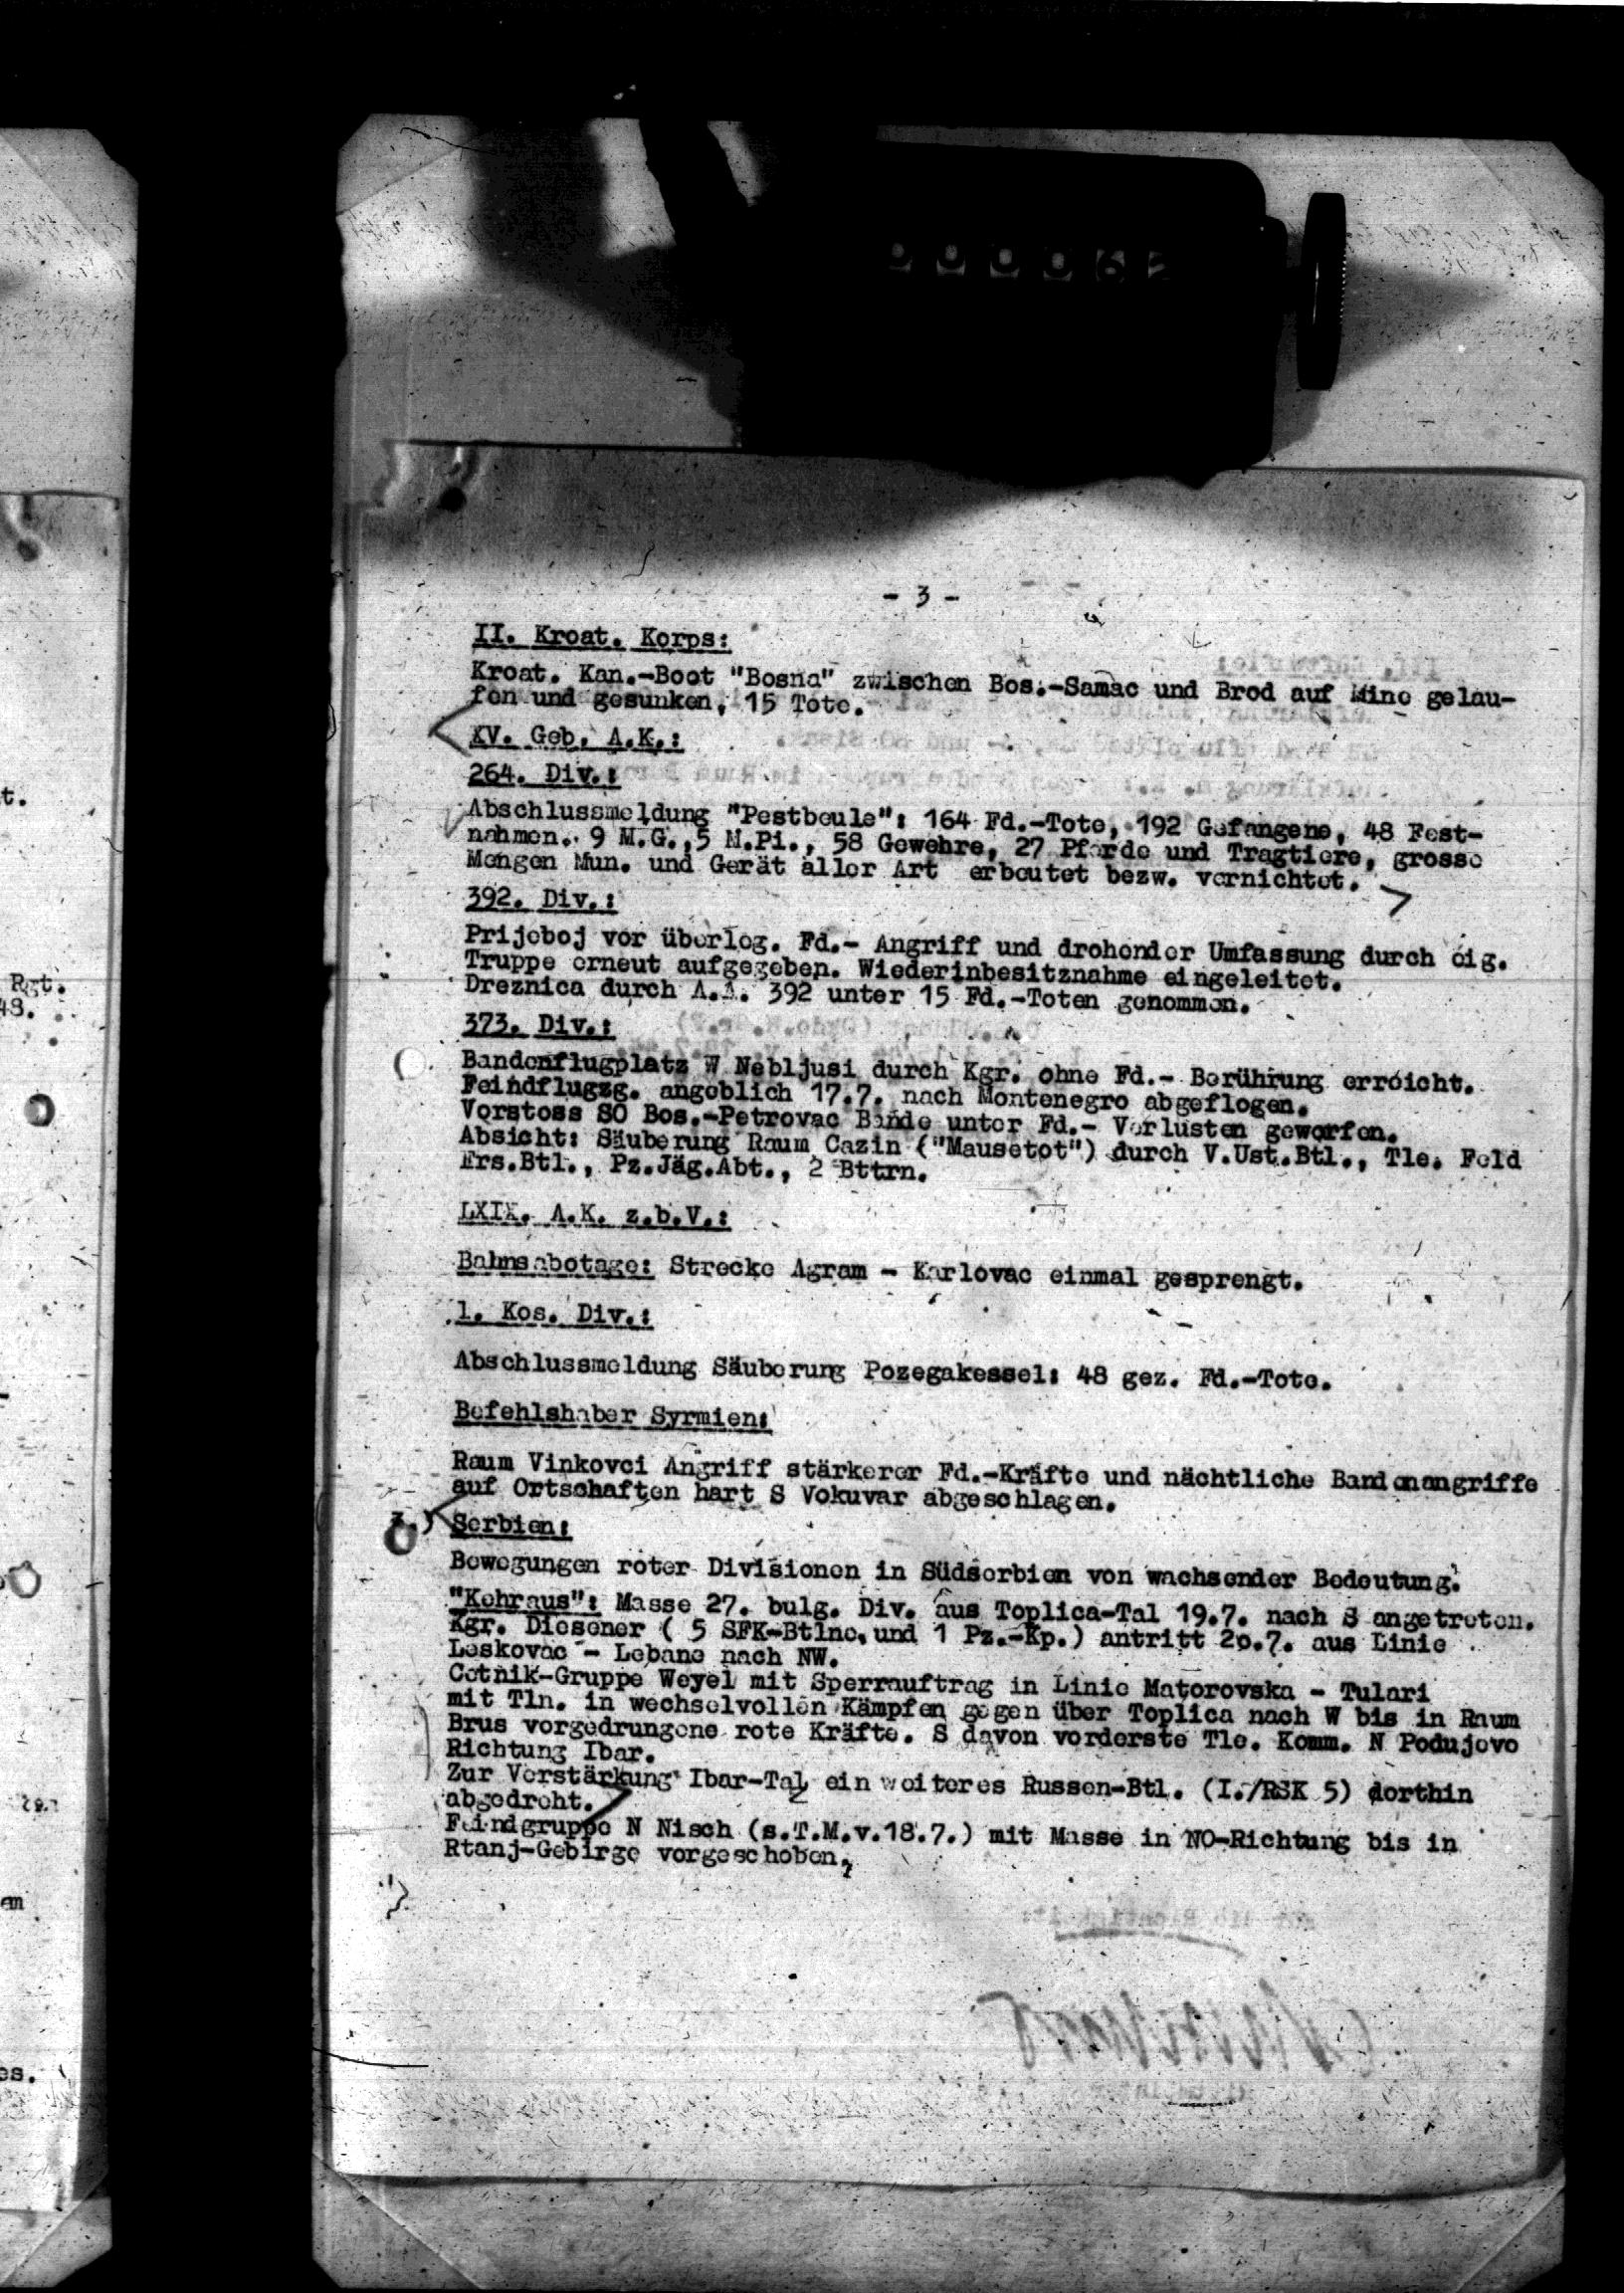 000062
- 3 -
II. Kroat. Korps:
Kroat. Kan.-Boot "Bosna" zwischen Bos.-Samac und Brod auf Mine gelau-
fen und gesunken, 15 Tote.
XV. Geb. A.K.:
264. Div.:
Abschlussmeldung "Pestbeule": 164 Fd.-Tote, 192 Gefangene, 48 Fest-
nahmen. 9 M.G., 5 M.Pi., 58 Gewehre, 27 Pferde und Tragtiere, grosse
Mengen Mun. und Gerät aller Art erbeutet bezw. vernichtet.
392. Div.:
Prijeboj vor überleg. Fd.- Angriff und drohender Umfassung durch eig.
Truppe erneut aufgegeben. Wiederinbesitznahme eingeleitet.
Dreznica durch A.A. 392 unter 15 Fd.-Toten genommen.
373. Div.:
Bandenflugplatz W Nebljusi durch Kgr. ohne Fd.- Berührung erreicht.
Feindflugzg. angeblich 17.7. nach Montenegro abgeflogen.
Vorstoss SO Bos.-Petrovac Bande unter Fd.- Verlusten geworfen.
Absicht: Säuberung Raum Cazin ("Mausetot") durch V.Ust.Btl., Tle. Feld
Ers.Btl., Pz.Jäg.Abt., 2 Bttrn.
LXIX. A.K. z.b.V.:
Bahnsabotage: Strecke Agram - Karlovac einmal gesprengt.
1. Kos. Div.:
Abschlussmeldung Säuberung Pozegakessel: 48 gez. Fd.-Tote.
Befehlshaber Syrmien:
Raum Vinkovci Angriff stärkerer Fd.-Kräfte und nächtliche Bandenangriffe
auf Ortschaften hart S Vokuvar abgeschlagen.
3.) Serbien:
Bewegungen roter Divisionen in Südserbien von wachsender Bedeutung.
"Kehraus": Masse 27. bulg. Div. aus Toplica-Tal 19.7. nach S angetreten.
Kgr. Diesener ( 5 SFK-Btlne. und 1 Pz.-Kp.) antritt 20.7. aus Linie
Leskovac - Lebane nach NW.
Cetnik-Gruppe Weyel mit Sperrauftrag in Linie Matorovska - Tulari
mit Tln. in wechselvollen Kämpfen gegen über Toplica nach W bis in Raum
Brus vorgedrungene rote Kräfte. S davon vorderste Tle. Komm. N Podujevo
Richtung Ibar.
Zur Verstärkung Ibar-Tal ein weiteres Russen-Btl. (I./RSK 5) dorthin
abgedreht.
Feindgruppe N Nisch (s.T.M.v.18.7.) mit Masse in NO-Richtung bis in
Rtanj-Gebirge vorgeschoben.
t.
Rgt.
48.
en
es.